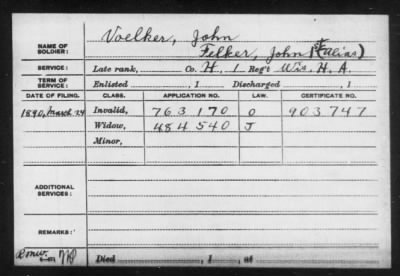 Voelker, John
NAME OF SOLDIER: Felker, John (alias)
SERVICE: Late rank, Co. H, 1 Reg't Wis. H. A.
TERM OF SERVICE: Enlisted , 1 Discharged , 1
DATE OF FILING. CLASS. APPLICATION NO. LAW. CERTIFICATE NO.
1890, March 24 Invalid, 763 170 O 903747
Widow, 484 540 J
Minor,
ADDITIONAL SERVICES:
REMARKS:
Died , 1 , at